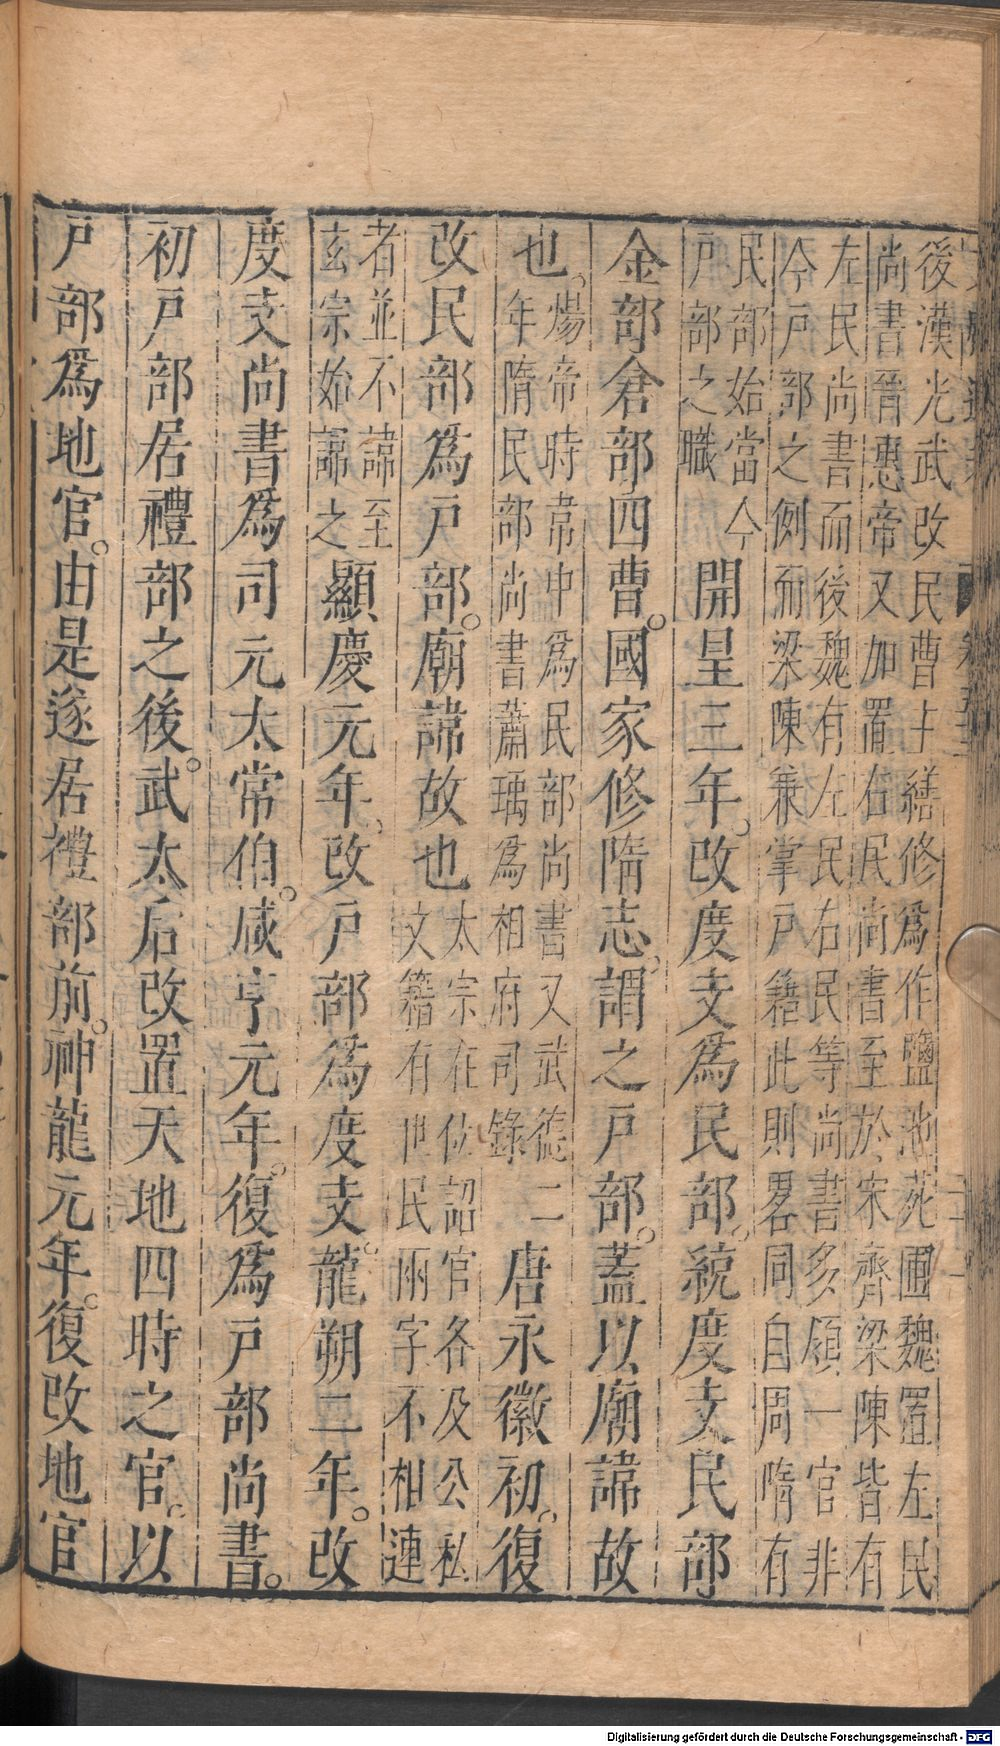 後漢光武改民曹主繕修爲作鹽池苑囿魏置左民
尚書晉惠帝又加置右民尚書至於宋齊梁陳皆有
左民尚書而後魏有左民右民等尚書多領一官非
今戸部之例而梁陳兼掌戸籍此則畧同自周隋有
民部始當今
戸部之職
開皇三年。改度支爲民部。統度支民部
金部倉部四曹。國家修隋志。謂之戸部。蓋以廟諱故
也。
煬帝時韋中爲民部尚書又武德二
年隋民部尚書蕭瑀爲相府司錄
唐永徽初。復
改民部爲戸部。廟諱故也
太宗在位詔官各及公私
文籍有世民兩字不相連
者並不諱至
玄宗始諱之
顯慶元年。改戸部爲度支。龍朔二年。改
度支尚書爲司元太常伯。咸亨元年。復爲戸部尚書。
初戸部居禮部之後。武太后改置天地四時之官。以
戸部爲地官。由是遂居禮部前。神龍元年。復改地官
Digitalisierung gefördert durch die Deutsche Forschungsgemeinschaft - DFG